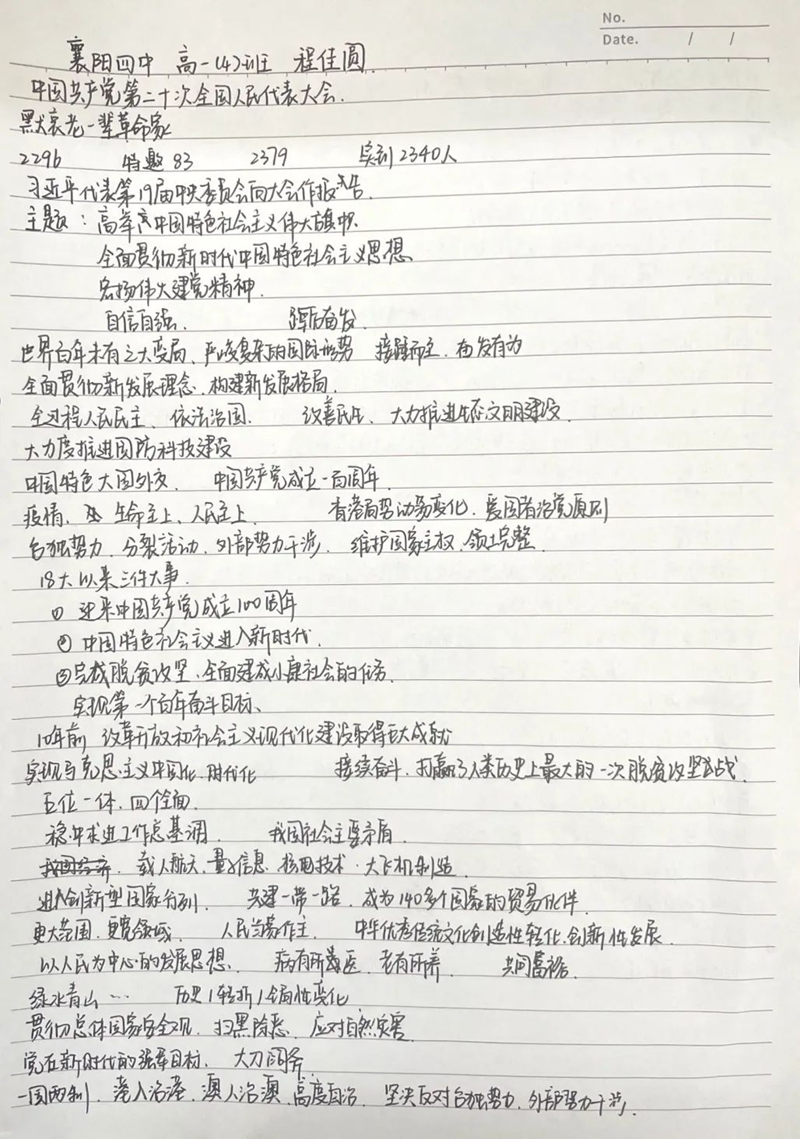 No.
Date. / /
襄阳四中 高一(4)班 程佳圆
中国共产党第二十次全国人民代表大会.
默哀老一辈革命家
2296 特邀83 2379 实到2340人
习近平代表第19届中央委员会向大会作报告.
主题：高举中国特色社会主义伟大旗帜
全面贯彻新时代中国特色社会主义思想
弘扬伟大建党精神.
自信自强、 奋发.
世界百年未有之大变局、严峻复杂的国际形势 接踵而至、 发有为
全面贯彻新发展理念、构建新发展格局.
全过程人民民主、依法治国. 改善民生、大力推进生态文明建设.
大力度推进国防科技建设
中国特色大国外交、 中国共产党成立一百周年.
疫情、生命至上、人民至上、 香港局势动荡变化、爱国者治党原则
台独势力、分裂活动、外部势力干涉. 维护国家主权、领土完整.
18大以来三件大事.
① 迎来中国共产党成立100周年
② 中国特色社会主义进入新时代.
③完成脱贫攻坚、全面建成小康社会的任务.
实现第一个百年奋斗目标、
10年前 改革开放和社会主义现代化建设取得巨大成就
实现马克思主义中国化、时代化 接续奋斗、打赢了人类历史上最大的一次脱贫攻坚战.
五位一体、四个全面.
稳中求进工作总基调. 我国社会主要矛盾.
载人航天、量子信息、核电技术、大飞机制造
进入创新型国家行列. 共建一带一路、成为140多个国家的贸易伙伴.
更大范围、更宽领域. 人民当家作主. 中华优秀传统文化创造性转化、创新性发展.
以人民为中心的发展思想. 病有所医、老有所养. 共同富裕.
绿水青山… 历史/转折/全局性变化
贯彻总体国家安全观、扫黑除恶、应对自然灾害
党在新时代的强军目标、大刀阔斧
一国两制、港人治港、澳人治澳、高度自治. 坚决反对台独势力、外部势力干涉.